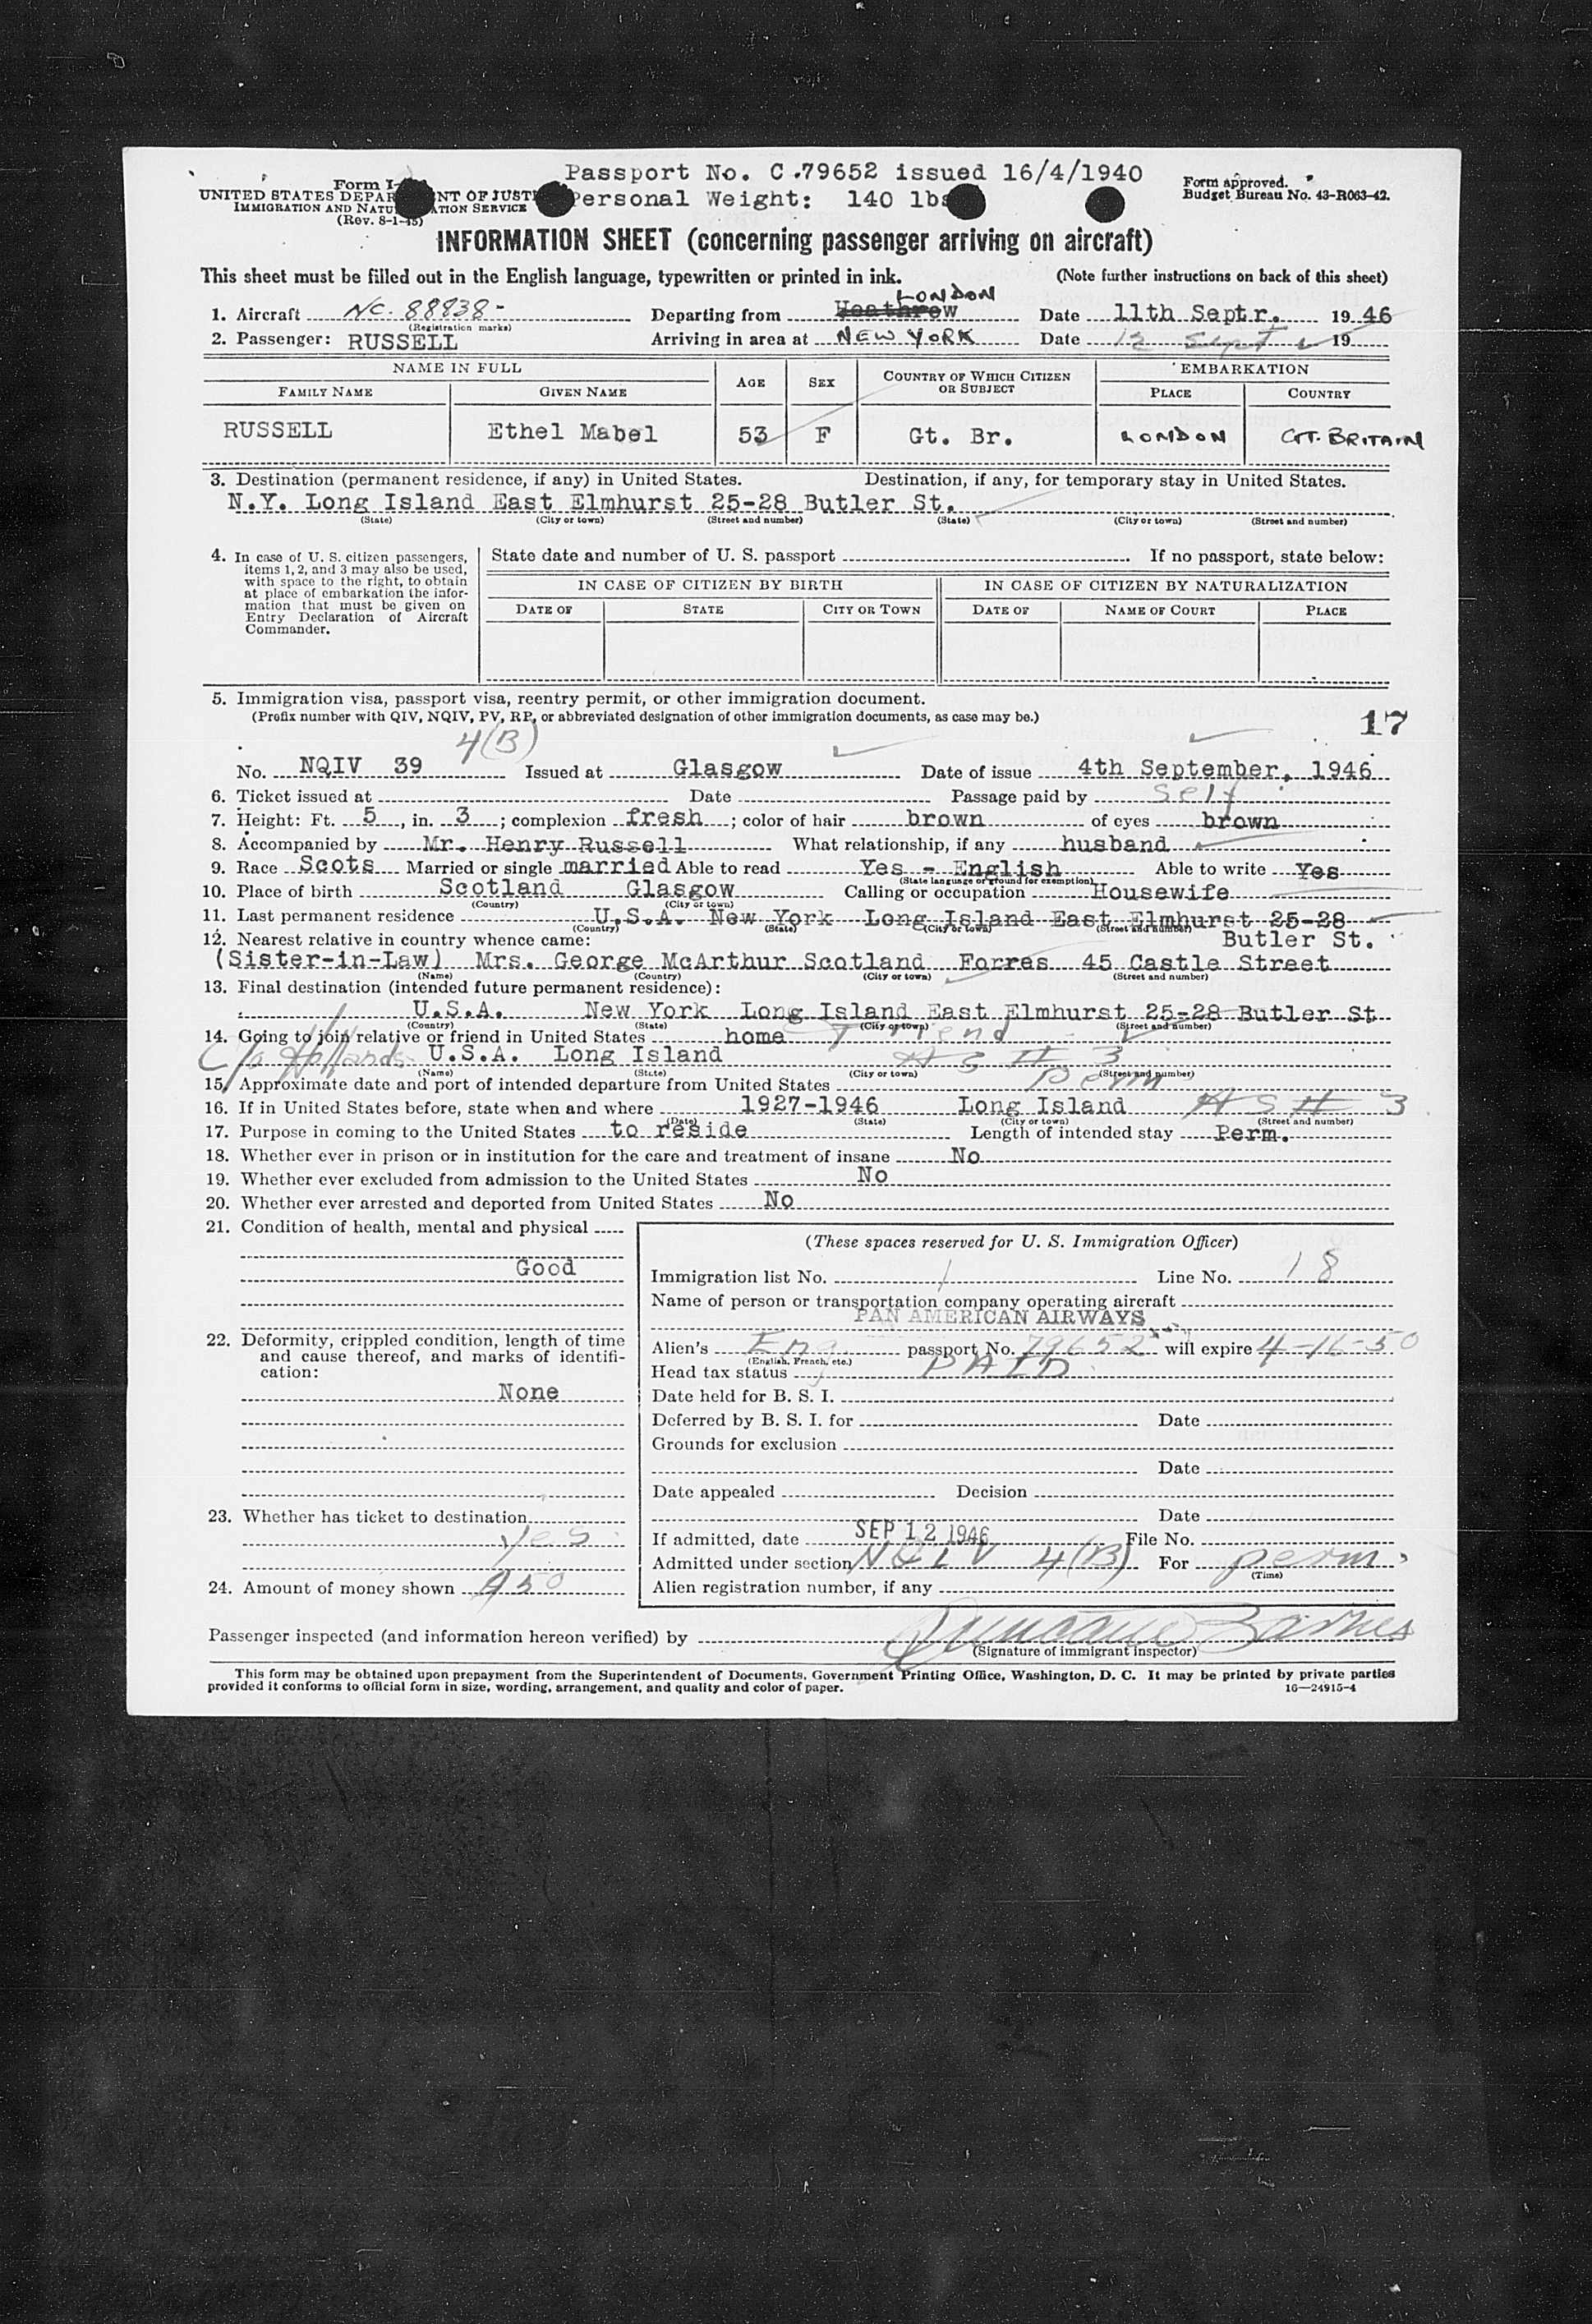 Passport No. C.79652 issued 16/4/1940
Personal Weight: 140 lbs
Form I-
UNITED STATES DEPAR NT OF JUSTI
IMMIGRATION AND NATU ATION SERVICE
(Rev. 8-1-45)
Form approved.
Budget Bureau No. 43-R063-42.
INFORMATION SHEET (concerning passenger arriving on aircraft)
This sheet must be filled out in the English language, typewritten or printed in ink. (Note further instructions on back of this sheet)
1. Aircraft NC. 88838- Departing from Heathrow LONDON Date 11th Septr. 1946
(Registration marks)
2. Passenger: RUSSELL Arriving in area at NEW YORK Date 12 Sept 19
NAME IN FULL AGE SEX COUNTRY OF WHICH CITIZEN OR SUBJECT EMBARKATION
FAMILY NAME GIVEN NAME PLACE COUNTRY
RUSSELL Ethel Mabel 53 F Gt. Br. LONDON GT. BRITAIN
3. Destination (permanent residence, if any) in United States. Destination, if any, for temporary stay in United States.
N.Y. Long Island East Elmhurst 25-28 Butler St.
(State) (City or town) (Street and number) (State) (City or town) (Street and number)
4. In case of U. S. citizen passengers, items 1, 2, and 3 may also be used, with space to the right, to obtain at place of embarkation the information that must be given on Entry Declaration of Aircraft Commander.
State date and number of U. S. passport If no passport, state below:
IN CASE OF CITIZEN BY BIRTH IN CASE OF CITIZEN BY NATURALIZATION
DATE OF STATE CITY OR TOWN DATE OF NAME OF COURT PLACE
5. Immigration visa, passport visa, reentry permit, or other immigration document.
(Prefix number with QIV, NQIV, PV, RP, or abbreviated designation of other immigration documents, as case may be.) 17
4(B)
No. NQIV 39 Issued at Glasgow Date of issue 4th September, 1946
6. Ticket issued at Date Passage paid by self
7. Height: Ft. 5, in. 3; complexion fresh; color of hair brown of eyes brown
8. Accompanied by Mr. Henry Russell What relationship, if any husband
9. Race Scots Married or single married Able to read Yes - English Able to write Yes
(State language or ground for exemption)
10. Place of birth Scotland Glasgow Calling or occupation Housewife
(Country) (City or town)
11. Last permanent residence U.S.A. New York Long Island East Elmhurst 25-28
(Country) (State) (City or town) (Street and number)
Butler St.
12. Nearest relative in country whence came:
(Sister-in-Law) Mrs. George McArthur Scotland Forres 45 Castle Street
(Name) (Country) (City or town) (Street and number)
13. Final destination (intended future permanent residence):
U.S.A. New York Long Island East Elmhurst 25-28 Butler St
(Country) (State) (City or town) (Street and number)
14. Going to join relative or friend in United States home Friend
c/o Hollands U.S.A. Long Island A S H 3
(Name) (State) (City or town) (Street and number)
15. Approximate date and port of intended departure from United States Perm
16. If in United States before, state when and where 1927-1946 Long Island A S H 3
(Date) (State) (City or town) (Street and number)
17. Purpose in coming to the United States to reside Length of intended stay Perm.
18. Whether ever in prison or in institution for the care and treatment of insane No
19. Whether ever excluded from admission to the United States No
20. Whether ever arrested and deported from United States No
21. Condition of health, mental and physical
Good
22. Deformity, crippled condition, length of time and cause thereof, and marks of identification:
None
23. Whether has ticket to destination
yes
24. Amount of money shown 950
(These spaces reserved for U. S. Immigration Officer)
Immigration list No. 1 Line No. 18
Name of person or transportation company operating aircraft
PAN AMERICAN AIRWAYS
Alien's Eng passport No. 79652 will expire 4-16-50
(English, French, etc.)
Head tax status PAID
Date held for B. S. I.
Deferred by B. S. I. for Date
Grounds for exclusion
Date
Date appealed Decision
Date
If admitted, date SEP 12 1946 File No.
Admitted under section NQIV 4(B) For perm.
(Time)
Alien registration number, if any
Passenger inspected (and information hereon verified) by
(Signature of immigrant inspector)
This form may be obtained upon prepayment from the Superintendent of Documents, Government Printing Office, Washington, D. C. It may be printed by private parties
provided it conforms to official form in size, wording, arrangement, and quality and color of paper. 16—24915-4